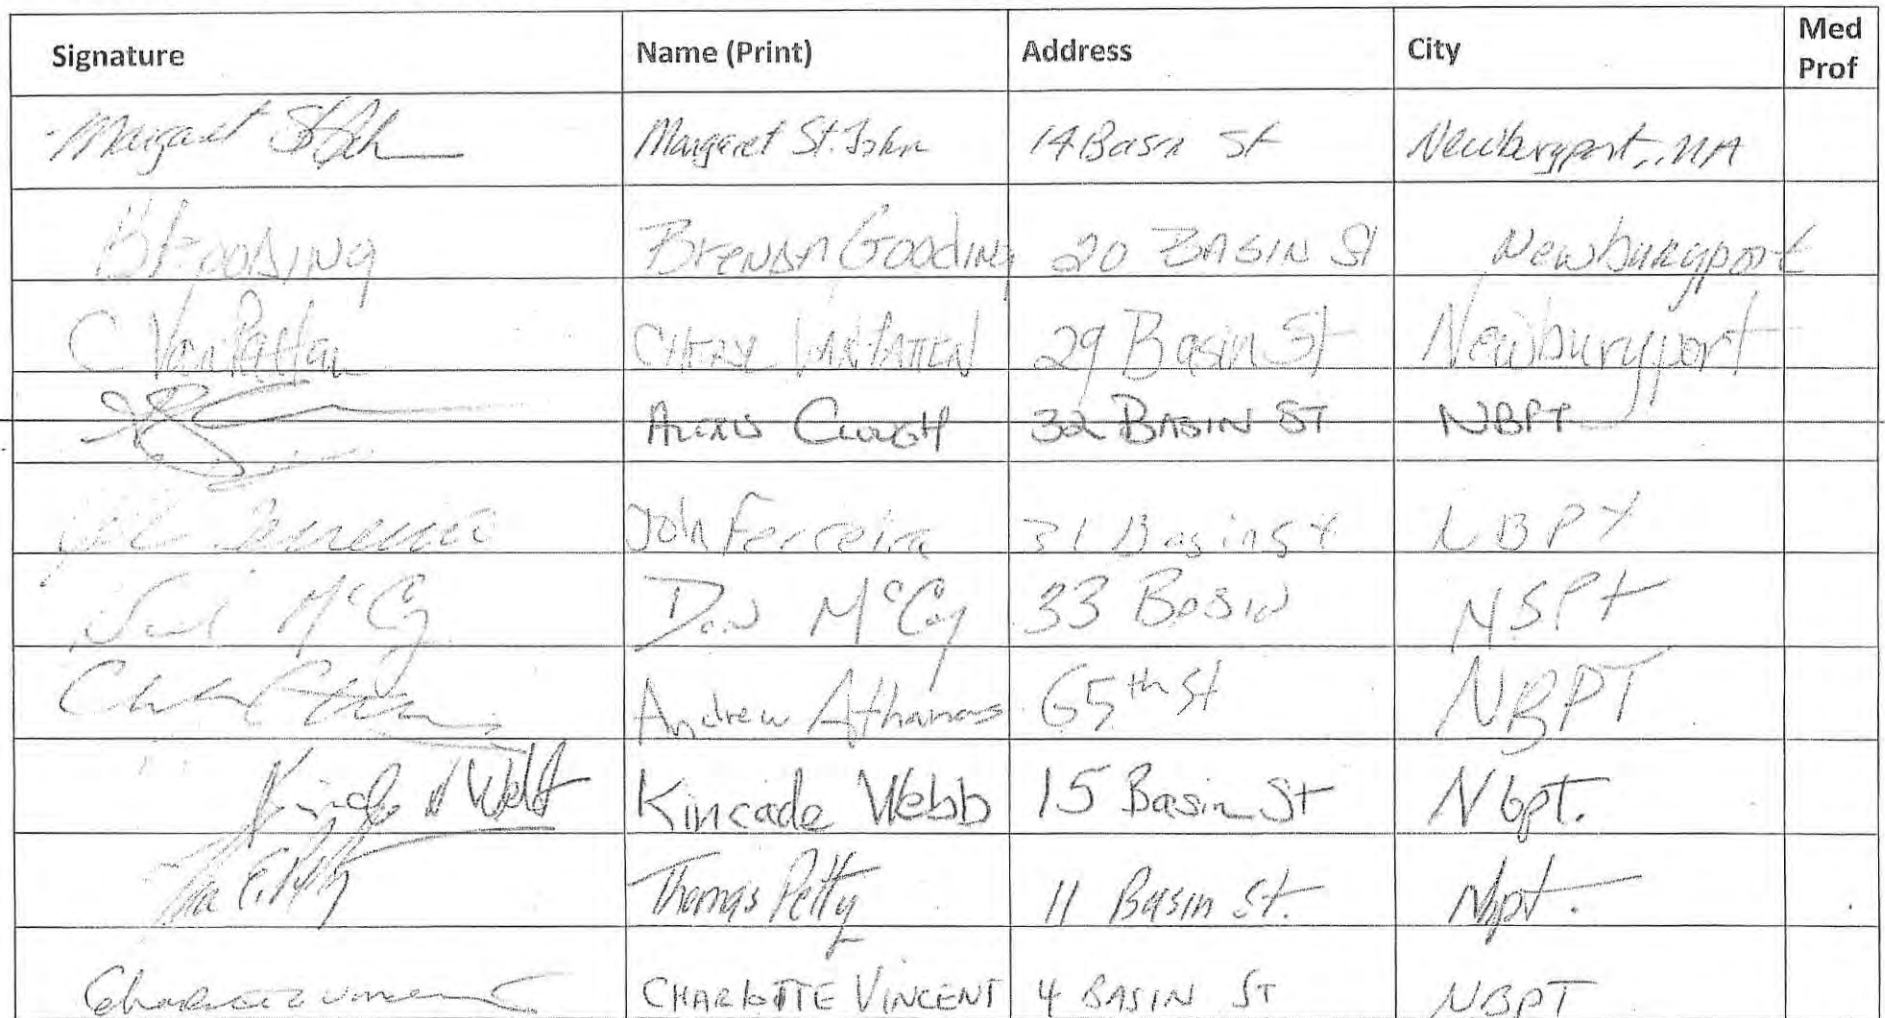 Signature Name (Print) Address City Med Prof
Margaret St. John Margaret St. John 14 Basin St Newburyport, MA
B Gooding Brenda Gooding 20 BASIN St Newburyport
C Van Patten CHERYL VAN PATTEN 29 Basin St Newburyport
ALEXIS CLOUGH 32 BASIN ST NBPT
John Ferreira John Ferreira 31 Basin St NBPT
McCoy Dan McCoy 33 Basin NBPt
Andrew Athanas 65th St NBPT
Kincade Webb Kincade Webb 15 Basin St Nbpt.
Thomas Petty 11 Basin St. Nbpt.
Charlotte Vincent CHARLOTTE VINCENT 4 BASIN ST NBPT